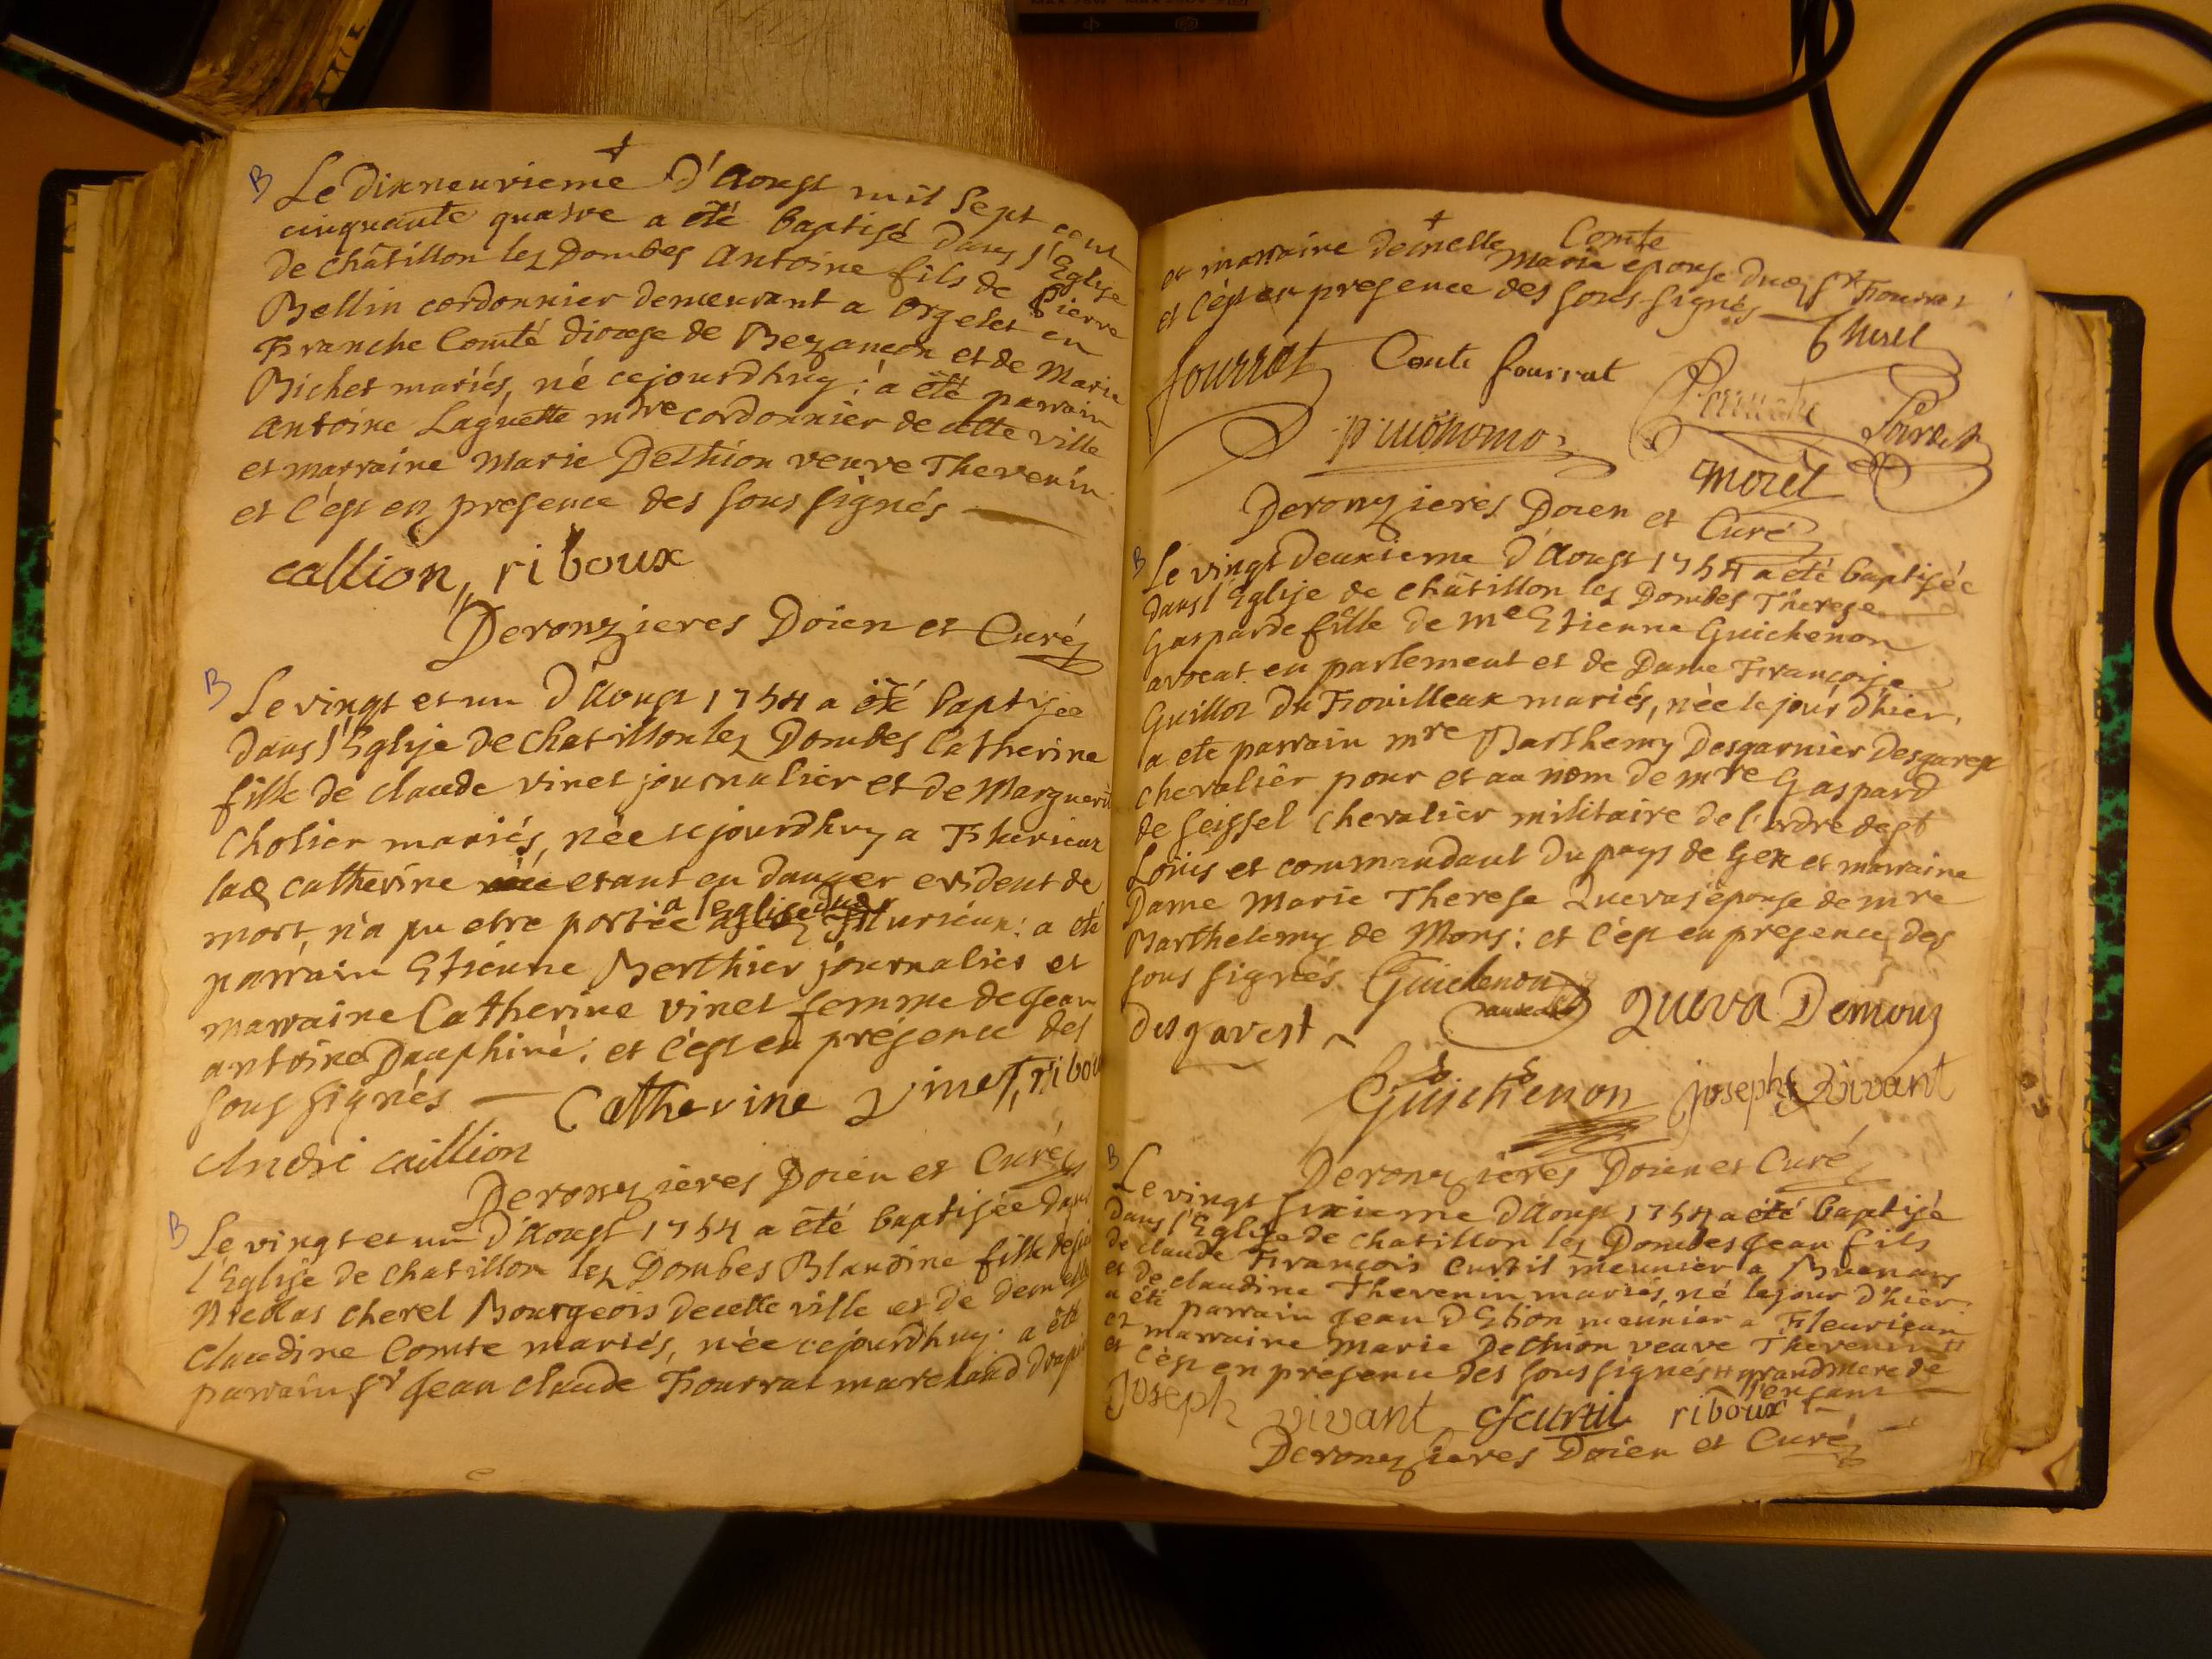 B Le dixneuvieme d'Aoust mil sept cent
cinquante quatre a été baptisé dans l'Eglise
de châtillon lez Dombes Antoine fils de Pierre
Bellin cordonnier demeurant a orgelet en
Franche Comté diocese de Bezançon et de Marie
Bichet mariés, né cejourdhuy: a été parrain
Antoine Laguette mtre cordonnier de cette ville
et marraine Marie Dethion veuve Thevenin
et c'est en presence des sous signés
callion, riboux
Deronzieres Doien et Curé
B Le vingt et un d'Aoust 1754 a été baptisée
dans l'Eglise de chatillon lez Dombes Catherine
fille de claude vinet journalier et de Marguerite
Cholier mariés, née cejourdhuy a
lad Catherine etant en danger evident de
mort, n'a pu etre portée a l'eglise dud : a eté
parrain Etienne Berthier journalier et
marraine Catherine vinet femme de Jean
antoine Dauphiné: et c'est en présence des
sous signés Catherine Vinet, ribou
André caillion
Deronzieres Doien et Curé
B Le vingt et un d'Aoust 1754 a été baptisée dans
l'Eglise de chatillon lez Dombes Blandine fille de
Nicolas cherel Bourgeois de cette ville et de demelle
Claudine Comte mariés, née cejourdhuy: a été
parrain sr Jean claude Fourrat marchand drapier
et marraine demelle Marie Comte epouse dud sr Fourrat
et c'est en presence des sous signés
Cherel
fourrat Comte fourrat
prudhomo
moret
Deronzieres Doien et Curé
B Le vingt deuxieme d'Aoust 1754 a été baptisée
dans l'Eglise de châtillon lez Dombes Therese
Gasparde fille de me Etienne Guichenon
avocat en parlement et de Dame Françoise
Guillot du Fouilleux mariés, née le jour d'hier,
a eté parrain mre Barthemy Desgarnier Desgarest
chevalier pour et au nom de mre Gaspard
de Seissel chevalier militaire de l'ordre de st
Louis et commandant du pays de Gex et marraine
Dame Marie Therese Quevas épouse de mre
Barthelemy de Mons: et c'est en presence des
sous signés. Guichenon
desgarest Queva Demons
Guichenon joseph Vivant
Deronzieres Doien et Curé
B Le vingt sixieme d'Aoust 1754 a été baptisé
dans l'Eglise de chatillon lez Dombes Jean fils
de claude François Curtil meunier a Buenans
et de claudine Thevenin mariés, né le jour d'hier:
a été parrain Jean d'Ethion meunier a Fleurieux
et marraine Marie Dethion veuve Thevenin #
et c'est en présence des sous signés # grandmere de
l'enfant
Joseph vivant Curtil riboux
Deronzieres Doien et Curé